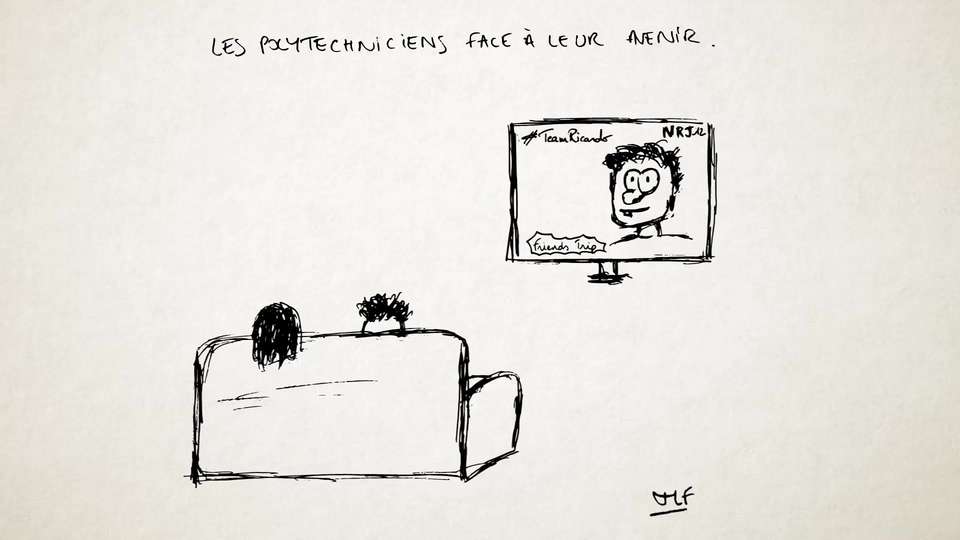 LES POLYTECHNICIENS FACE À LEUR AVENIR.
#TeamRicardo
NRJ12
Friends Trip
JMF